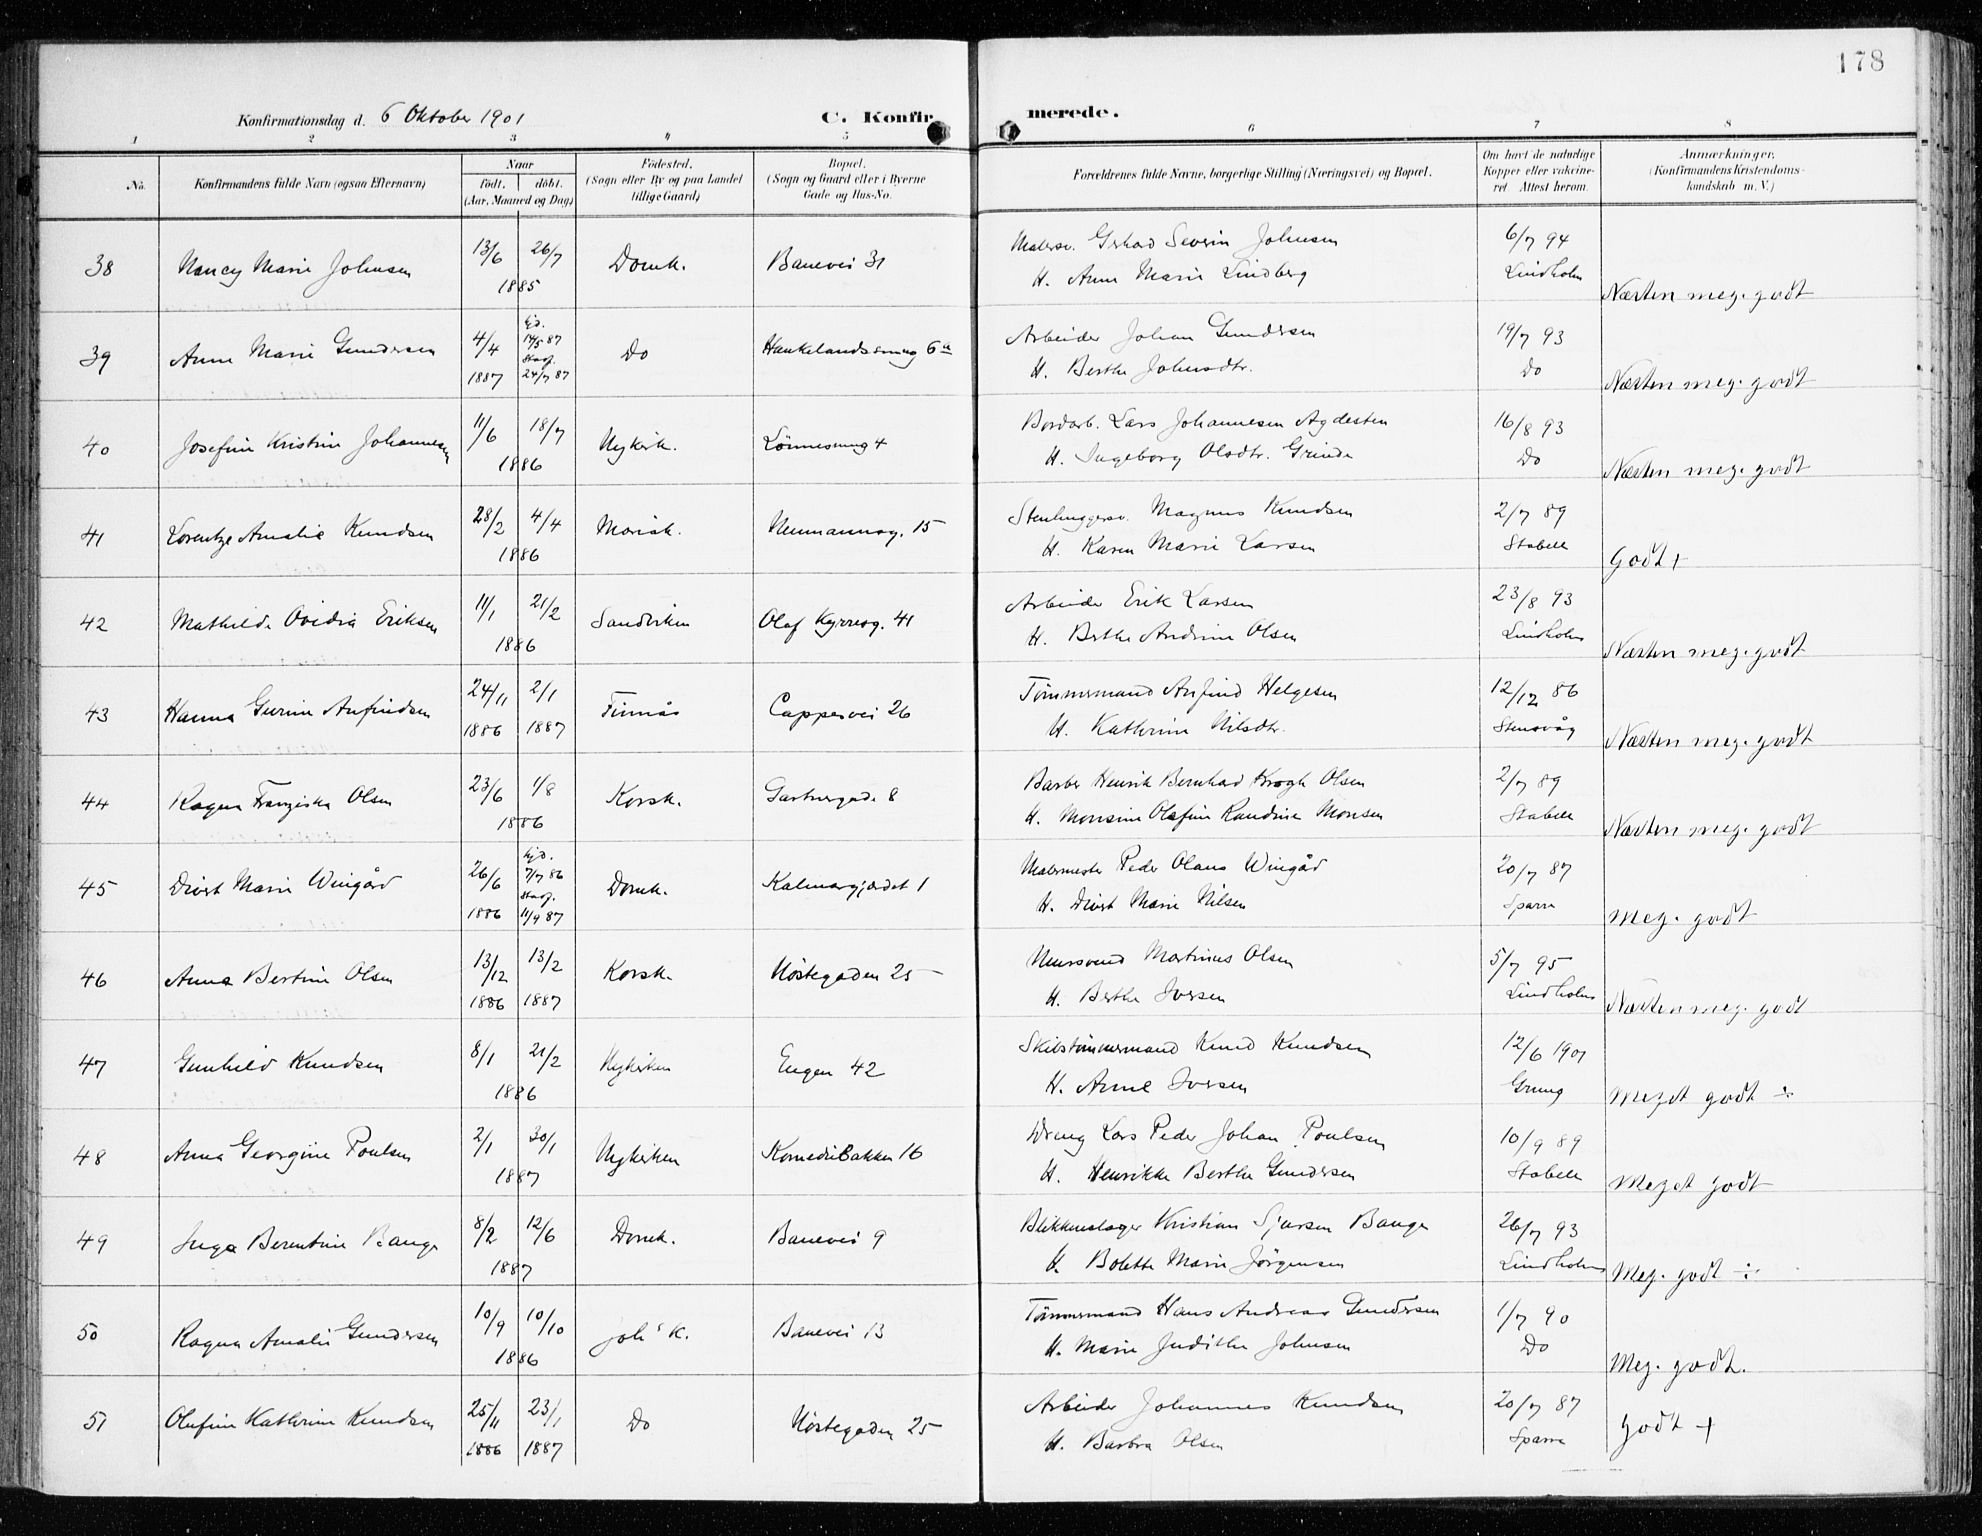 178
Konfirmationsdag d. 6 Oktober 1901 C. Konfirmerede.
1 2 3 4 5 6 7 8
No. Konfirmandens fulde Navn (ogsaa Efternavn) Naar födt. döbt. (Aar, Maaned og Dag) Födested. (Sogn eller By og paa Landet tillige Gaard) Bopæl. (Sogn og Gaard eller i Byerne Gade og Hus-No. Forældrenes fulde Navne, borgerlige Stilling (Næringsvei) og Bopæl. Om havt de naturlige Kopper eller vakcineret. Attest herom. Anmærkninger. (Konfirmandens Kristendomskundskab m. V.)
38 Nancy Marie Johnsen 13/6 26/7 1885 Domk. Banevei 31 Malersv. Gerhard Severin Johnsen 6/7 94
H. Anne Marie Lindberg Lindholm Næsten meg. godt
39 Anne Marie Gundersen 4/4 1887 hjd. 14/5 87 Stadf. 24/7 87 Do Haukelandssmug 6a Arbeider Johan Gundersen 19/7 93
H. Berthe Johnsdtr. Do Næsten meg. godt
40 Josefine Kristine Johannesen 11/6 18/7 1886 Nykirk. Lönnesmug 4 Bordarb. Lars Johannesen Agdesten 16/8 93
H. Ingeborg Olsdtr. Grinde Do Næsten meg. godt
41 Lorentze Amalie Knudsen 28/2 4/4 1886 Mariak. Neumannsg. 15 Stenhuggersv. Magnus Knudsen 2/7 89
H. Karen Marie Larsen Stabell Godt +
42 Mathilde Ovidia Eriksen 11/1 21/2 1886 Sandviken Olaf Kyrresg. 41 Arbeider Erik Larsen 23/8 93
H. Berthe Andrine Olsen Lindholm Næsten meg. godt
43 Hanna Gurine Anfindsen 24/11 1886 2/1 1887 Finnås Cappesvei 26 Tömmermand Anfind Helgesen 12/12 86
H. Kathrine Nilsdtr. Stensvåg Næsten meg. godt
44 Ragna Franziska Olsen 23/6 1/8 1886 Korsk. Gartnergade 8 Barber Henrik Bernhad Krogh Olsen 2/7 89
H. Monsine Olefine Randine Monsen Stabell Næsten meg. godt
45 Divert Marie Wingård 26/6 1886 hjd. 7/7 86 Stadf. 11/9 87 Domk. Kalmargjerdet 1 Malermester Peder Olaus Wingård 20/7 87
H. Divert Marie Nilsen Sparre Meg. godt
46 Anna Bertine Olsen 13/12 1886 13/2 1887 Korsk. Nöstegaden 25 Murersvend Martinus Olsen 5/7 95
H. Berthe Iversen Lindholm Næsten meg. godt
47 Gunhild Knudsen 8/1 21/2 1886 Nykirken Engen 42 Skibstömmermand Knud Knudsen 12/6 1901
H. Anne Iversen Grung Meget godt ÷
48 Anna Georgine Poulsen 2/1 30/1 1887 Nykirken Komediebakken 16 Dreng Lars Peder Johan Poulsen 10/9 89
H. Henrikke Berthe Gundersen Stabell Meget godt
49 Inga Berentine Bauge 8/2 12/6 1887 Domk. Banevei 9 Blikkenslager Kristian Sjursen Bauge 26/7 93
H. Bolette Marie Jörgensen Lindholm Meg. godt ÷
50 Ragna Amalie Gundersen 10/9 10/10 1886 Joh's K. Banevei 13 Tömmermand Hans Andreas Gundersen 1/7 90
H. Marie Judithe Johnsen Do Meg. godt.
51 Olufine Kathrine Knudsen 25/11 1886 23/1 1887 Do Nöstegaden 25 Arbeider Johannes Knudsen 20/7 87
H. Barbra Olsen Sparre Godt +